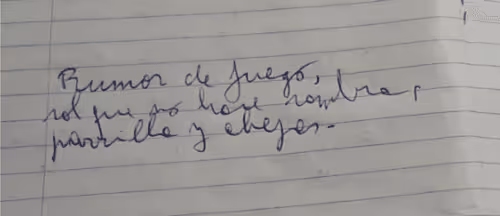 Rumor de fuego,
sol que no hace sombra,
parrilla y abejas.